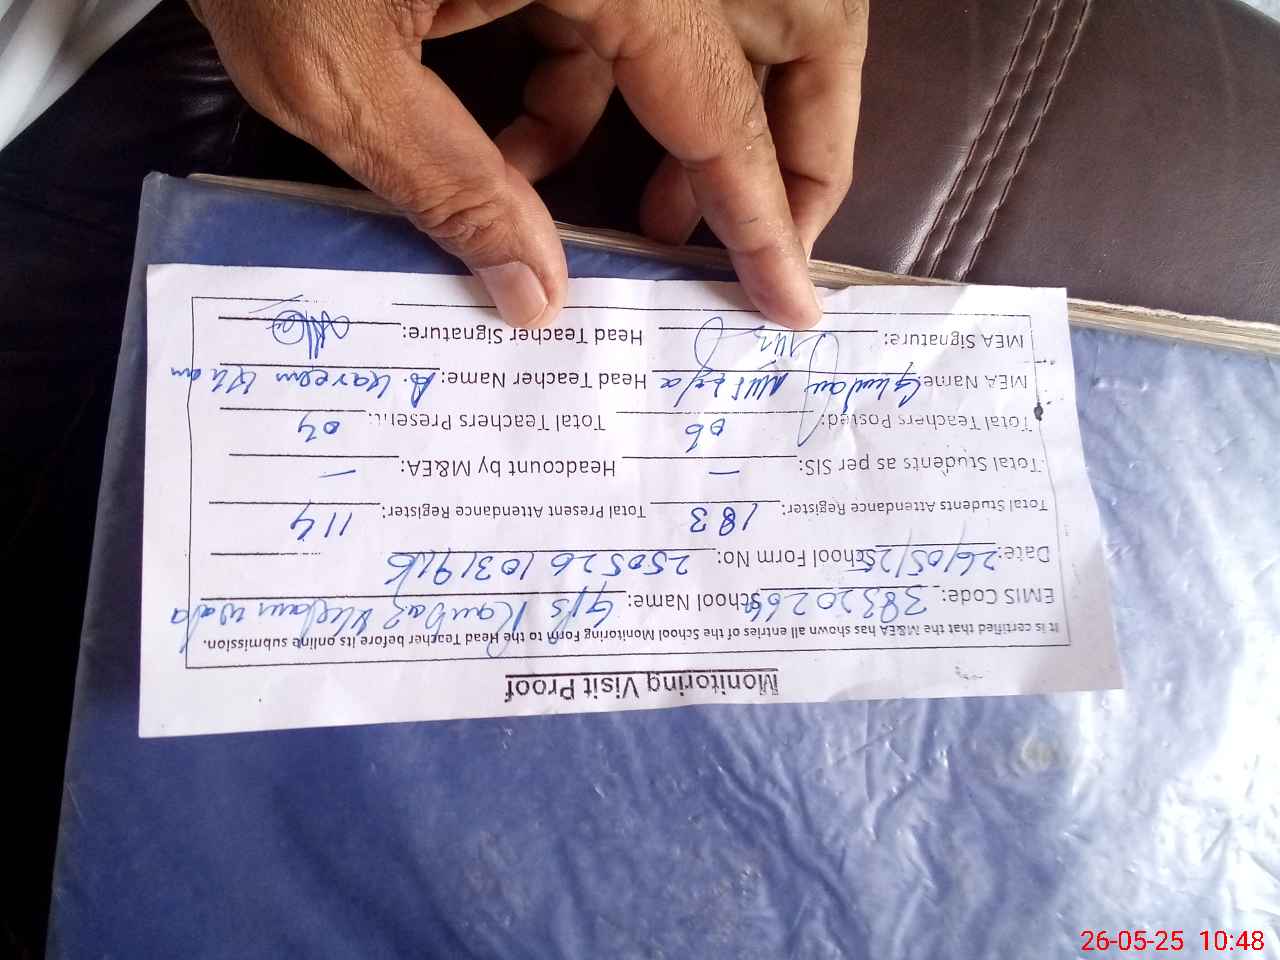 Monitoring Visit Proof
It is certified that the M&EA has shown all entries of the School Monitoring Form to the Head Teacher before its online submission.
EMIS Code: 38320268 School Name: G/s
Date: 26/05/25 School Form No: 250526103191
Total Students Attendance Register: 183 Total Present Attendance Register: 114
Total Students as per SIS: — Headcount by M&EA: —
Total Teachers Posted: 06 Total Teachers Present: 04
MEA Name: Ghulam Mustafa Head Teacher Name: A. Kareem Khan
MEA Signature: Head Teacher Signature:
26-05-25 10:48